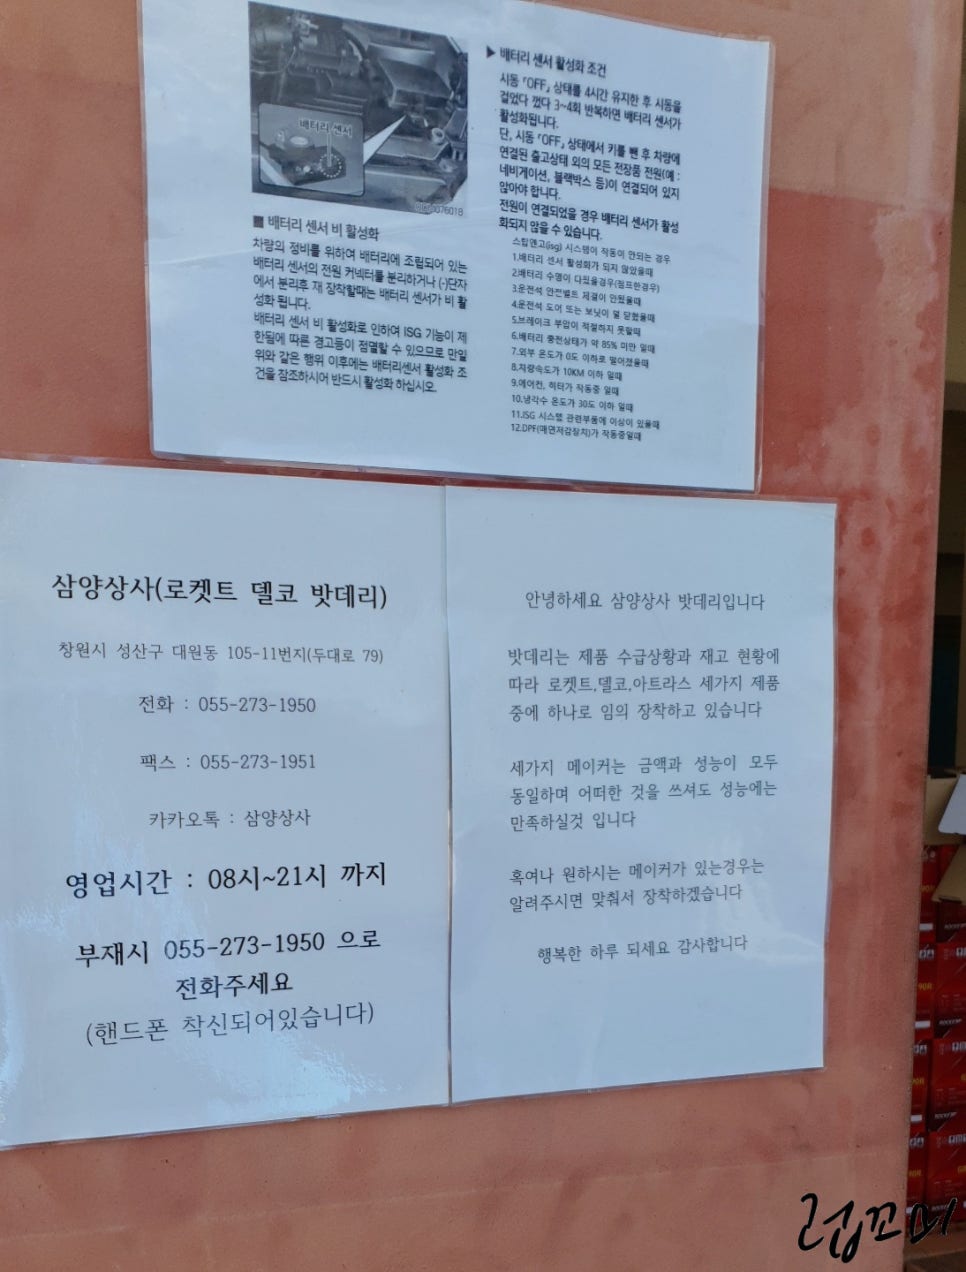 배터리 센서
■ 배터리 센서 비 활성화
차량의 정비를 위하여 배터리에 조립되어 있는
배터리 센서의 전원 커넥터를 분리하거나 (-)단자
에서 분리후 재 장착할때는 배터리 센서가 비 활
성화 됩니다.
배터리 센서 비 활성화로 인하여 ISG 기능이 제
한됨에 따른 경고등이 점멸할 수 있으므로 만일
위와 같은 행위 이후에는 배터리센서 활성화 조
건을 참조하시어 반드시 활성화 하십시오.
▶ 배터리 센서 활성화 조건
시동 「OFF」 상태를 4시간 유지한 후 시동을
걸었다 껐다 3~4회 반복하면 배터리 센서가
활성화됩니다.
단, 시동 「OFF」 상태에서 키를 뺀 후 차량에
연결된 출고상태 외의 모든 전장품 전원(예 :
네비게이션, 블랙박스 등)이 연결되어 있지
않아야 합니다.
전원이 연결되었을 경우 배터리 센서가 활성
화되지 않을 수 있습니다.
스탑앤고(isg) 시스템이 작동이 안되는 경우
1.배터리 센서 활성화가 되지 않았을때
2.배터리 수명이 다됬을경우(점프한경우)
3.운전석 안전벨트 체결이 안됬을때
4.운전석 도어 또는 보닛이 덜 닫혔을때
5.브레이크 부압이 적절하지 못할때
6.배터리 충전상태가 약 85% 미만 일때
7.외부 온도가 0도 이하로 떨어졌을때
8.차량속도가 10KM 이하 일때
9.에어컨, 히터가 작동중 일때
10.냉각수 온도가 30도 이하 일때
11.ISG 시스템 관련부품에 이상이 있을때
12.DPF(매연저감장치)가 작동중일때
삼양상사(로켓트 델코 밧데리)
창원시 성산구 대원동 105-11번지(두대로 79)
전화 : 055-273-1950
팩스 : 055-273-1951
카카오톡 : 삼양상사
영업시간 : 08시~21시 까지
부재시 055-273-1950 으로
전화주세요
(핸드폰 착신되어있습니다)
안녕하세요 삼양상사 밧데리입니다
밧데리는 제품 수급상황과 재고 현황에
따라 로켓트,델코,아트라스 세가지 제품
중에 하나로 임의 장착하고 있습니다
세가지 메이커는 금액과 성능이 모두
동일하며 어떠한 것을 쓰셔도 성능에는
만족하실것 입니다
혹여나 원하시는 메이커가 있는경우는
알려주시면 맞춰서 장착하겠습니다
행복한 하루 되세요 감사합니다